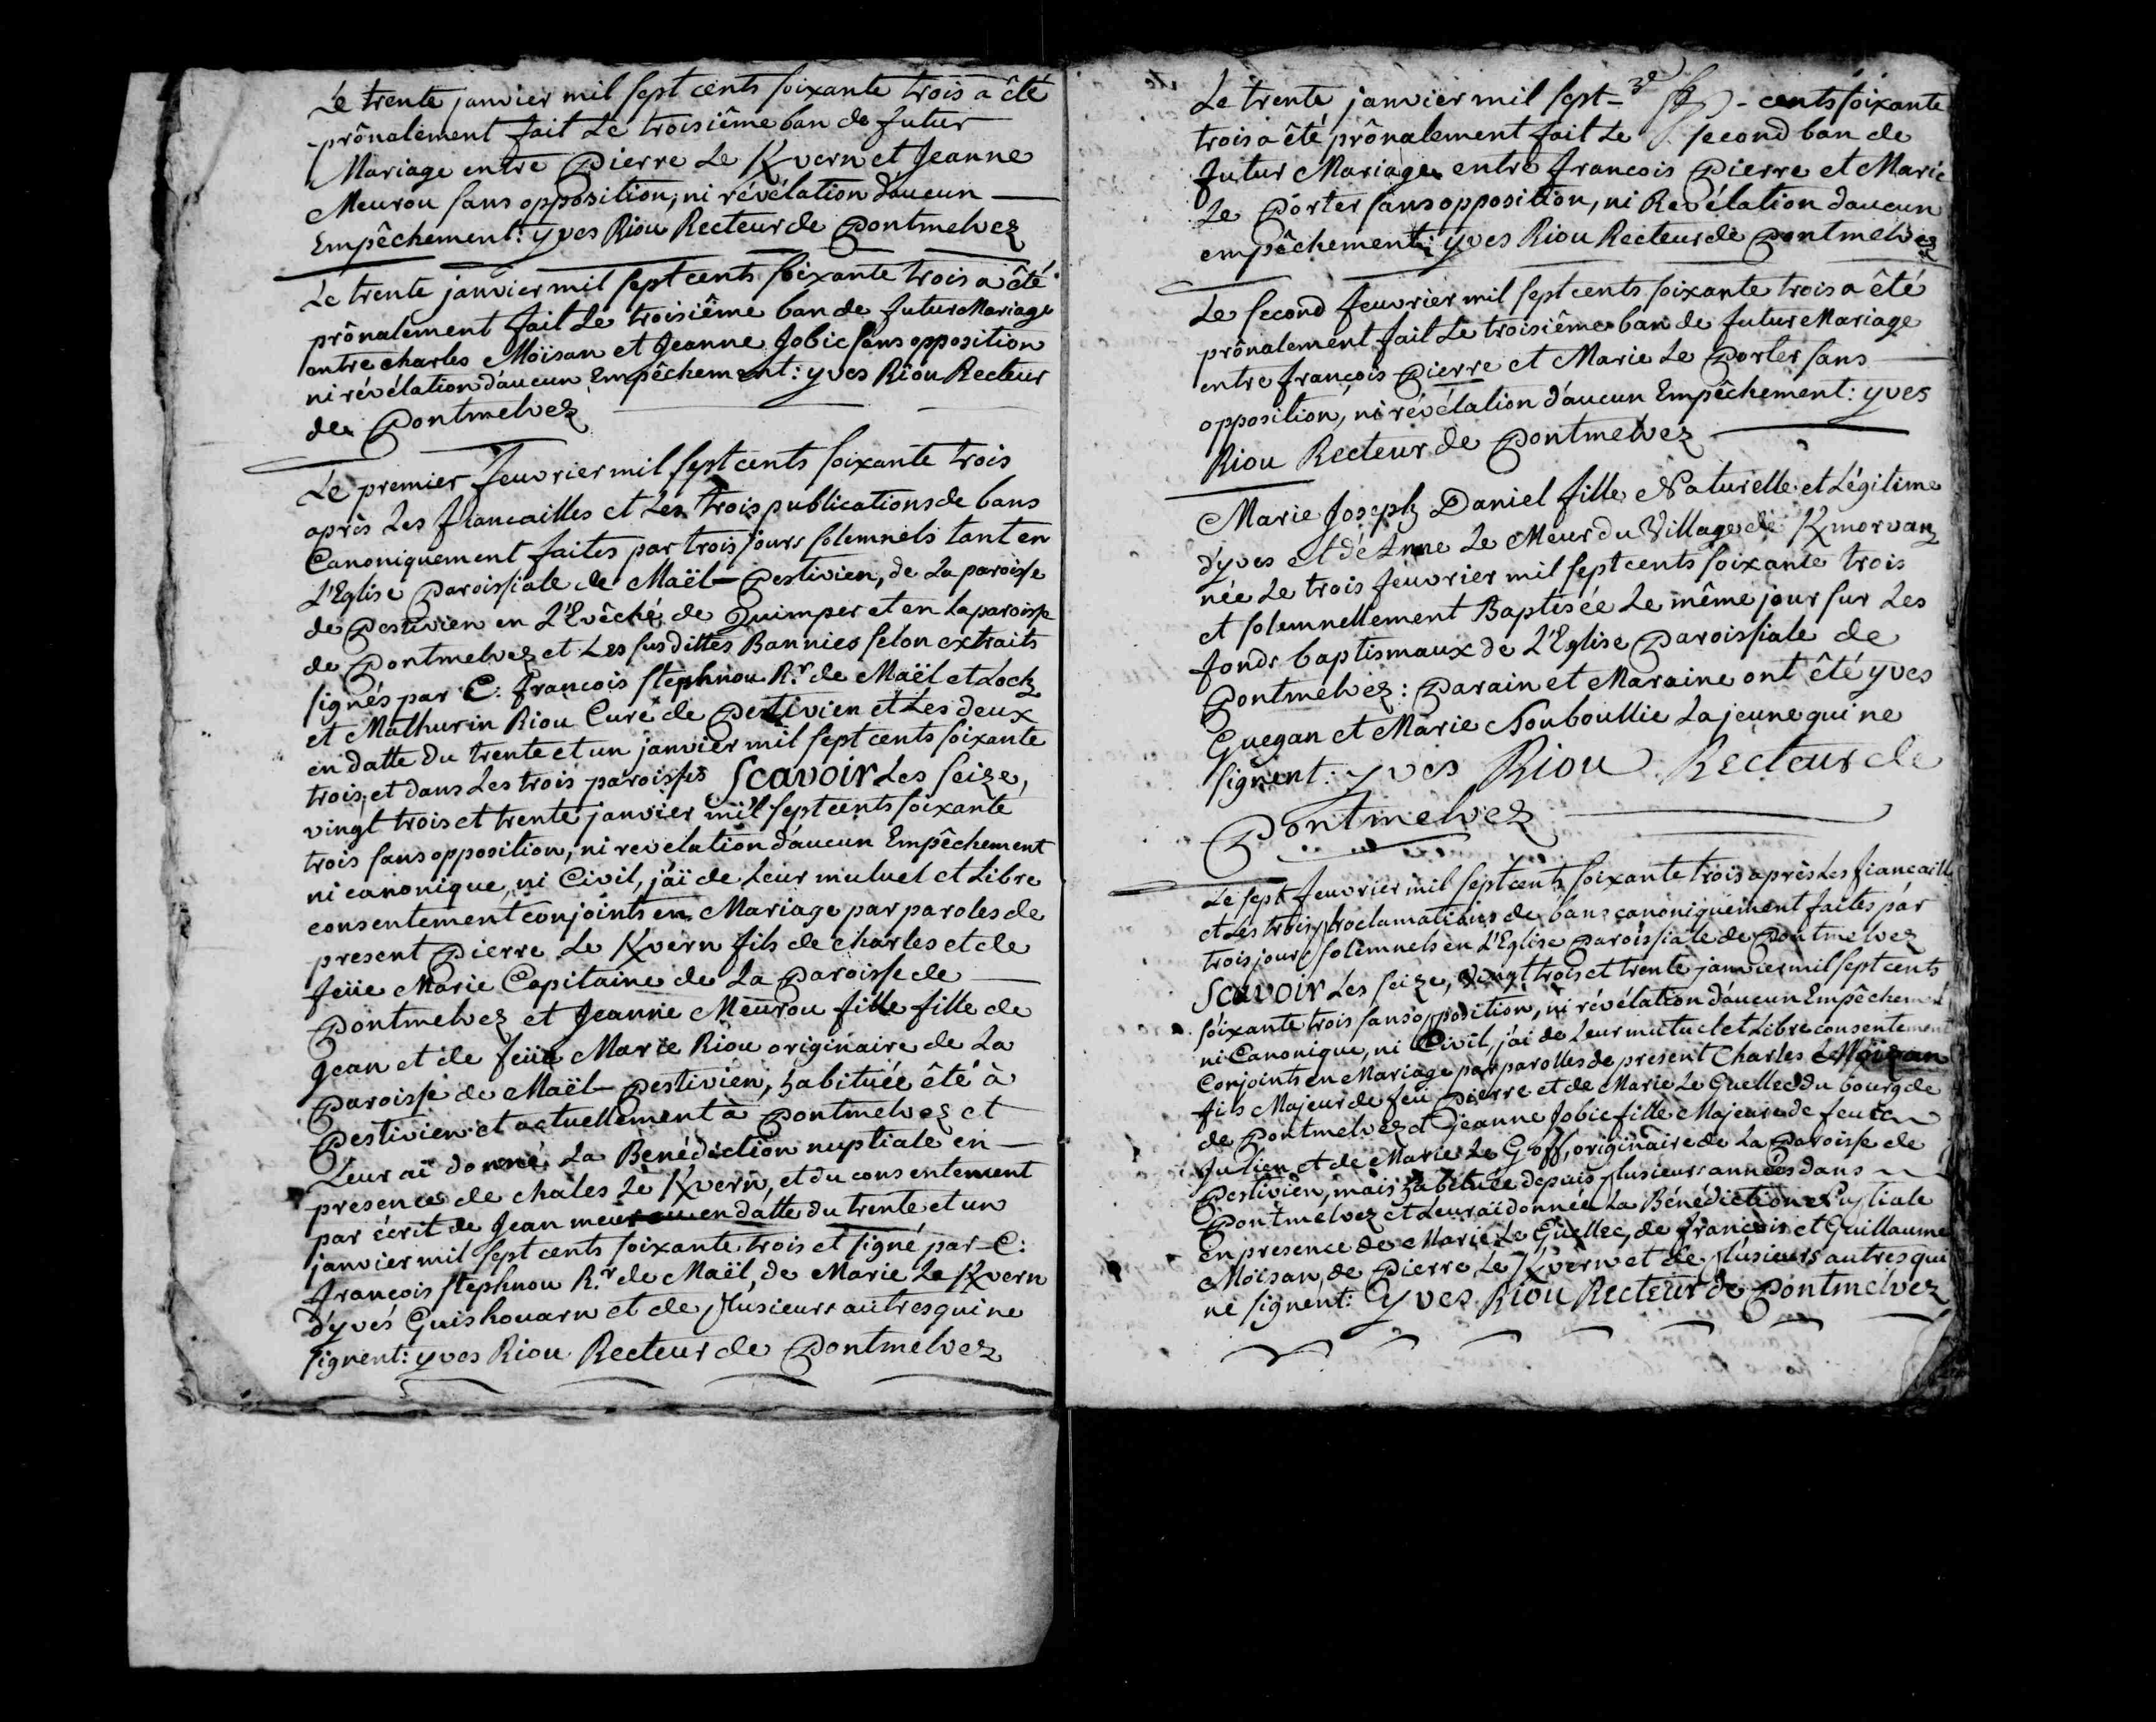 Le trente janvier mil sept cents soixante trois a êté
prônalement fait Le troisiême ban de futur
Mariage entre Pierre Le Kvern et Jeanne
Meurou sans opposition, ni révélation d'aucun
Empêchement: yves Riou Recteur de Pontmelvez
Le trente janvier mil sept cents soixante trois a êté
prônalement fait Le troisiême ban de futur Mariage
entre charles Moïsan et Jeanne Jobic sans opposition
ni révélation d'aucun Empêchement: yves Riou Recteur
de Pontmelvez
Le premier feuvrier mil sept cents soixante trois
après Les fiancailles et Les trois publications de bans
Canoniquement faites par trois jours solemnels tant en
L'Eglise Paroissiale de Maël-Pestivien, de La paroisse
de Pestivien en L'Evêché de Quimper et en La paroisse
de Pontmelvez et Les susdittes Bannies selon extraits
signés par C: françois stephnou R.r de Maël et Lock
et Mathurin Riou Curé de Pestivien et Les deux
en datte du trente et un janvier mil sept cents soixante
trois, et dans Les trois paroisses Scavoir Les seize,
vingt trois et trente janvier mil sept cents soixante
trois sans opposition, ni revelation d'aucun Empêchement
ni canonique, ni Civil, j'ai de Leur mutuel et Libre
consentement conjoints en Mariage par paroles de
present Pierre Le Kvern fils de charles et de
feüe Marie Capitaine de La Paroisse de
Pontmelvez et Jeanne Meurou fille fille de
Jean et de feüe Marie Riou originaire de La
Paroisse de Maël-Pestivien, habituée êté à
Pestivien et actuellement à Pontmelvez et
Leur ai donné La Bénédiction nuptiale en
presence de chales Le Kvern, et du consentement
par écrit de Jean meurou en datte du trente et un
janvier mil sept cents soixante trois et signé par C:
françois stephnou R.r de Maël, de Marie Le Kvern
d'yves Guishouarn et de plusieurs autres qui ne
signent: yves Riou Recteur de Pontmelvez
Le trente janvier mil sept - 3e - cents soixante
trois a êté prônalement fait Le second ban de
futur Mariage entre françois Pierre et Marie
Le Porter sans opposition, ni Revélation d'aucun
empêchement: yves Riou Recteur de Pontmelvez
Le second feuvrier mil sept cents soixante trois a êté
prônalement fait Le troisiême ban de futur Mariage
entre françois Pierre et Marie Le Porter sans
opposition, ni révélation d'aucun Empêchement: yves
Riou Recteur de Pontmelvez
Marie Joseph Daniel fille Naturelle et Légitime
d'yves et d'Anne Le Meur du Village de Kmorvan
née Le trois feuvrier mil sept cents soixante trois
et solemnellement Baptisée Le même jour sur Les
fonds baptismaux de L'Eglise Paroissiale de
Pontmelvez: Parain et Maraine ont êté yves
Guegan et Marie Nouboullie La jeune qui ne
signent: yves Riou Recteur de
Pontmelvez
Le sept feuvrier mil sept cents soixante trois après Les fiancaill
et Les trois proclamations de bans canoniquement faites par
trois jours solemnels en L'Eglise Paroissiale de Pontmelvez
Scavoir Les seize, vingt trois et trente janvier mil sept cents
soixante trois sans opposition, ni révélation d'aucun Empêchement
ni Canonique, ni Civil, j'ai de Leur mutuel et Libre consentement
Conjoints en Mariage par parolles de present Charles Moïsan
fils Majeur de feu Pierre et de Marie Le Guellec du bourg de
de Pontmelvez et jeanne Jobic fille Majeure de feu
Julien et de Marie Le Goff, originaire de La Paroisse de
Pestivien, mais habituée depuis plusieurs années dans
Pontmelvez et Leur ai donnée La Bénédiction Nuptiale
en presence de Marie Le Guellec, de françois et Guillaume
Moïsan, de Pierre Le Kvern et de plusieurs autres qui
ne signent: yves Riou Recteur de Pontmelvez